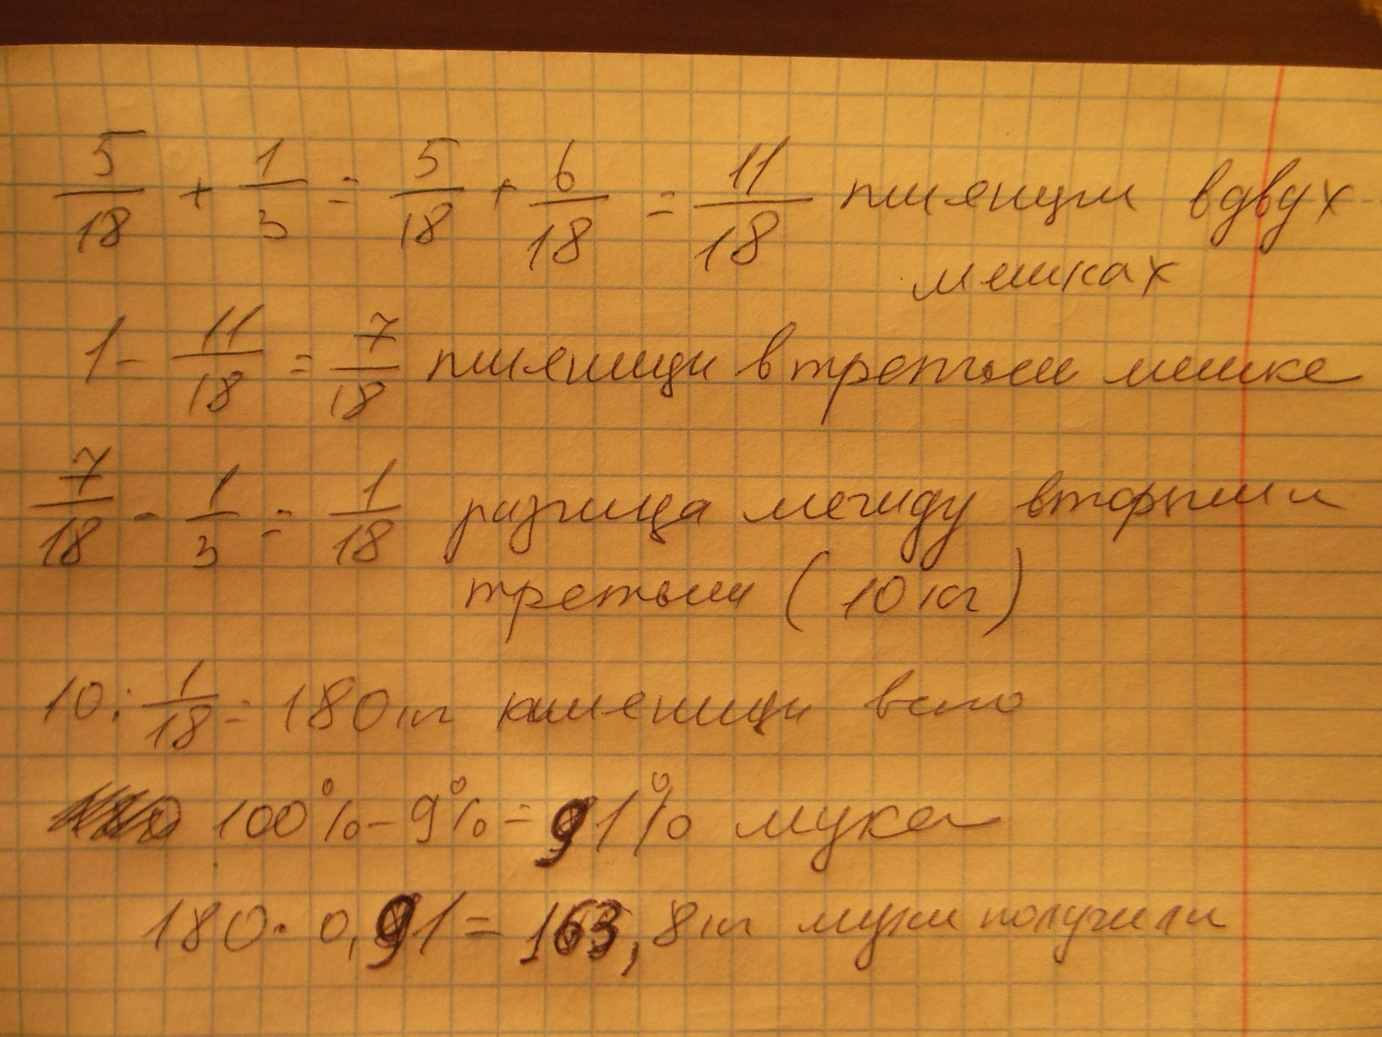 5/18 + 1/3 = 5/18 + 6/18 = 11/18 пшеници в двух
мешках
1 - 11/18 = 7/18 пшеници в третьем мешке
7/18 - 1/3 = 1/18 разница между вторым и
третьим (10 кг)
10 : 1/18 = 180 кг пшеници всего
100% - 9% = 91% мука
180 · 0,91 = 163,8 кг муки получили